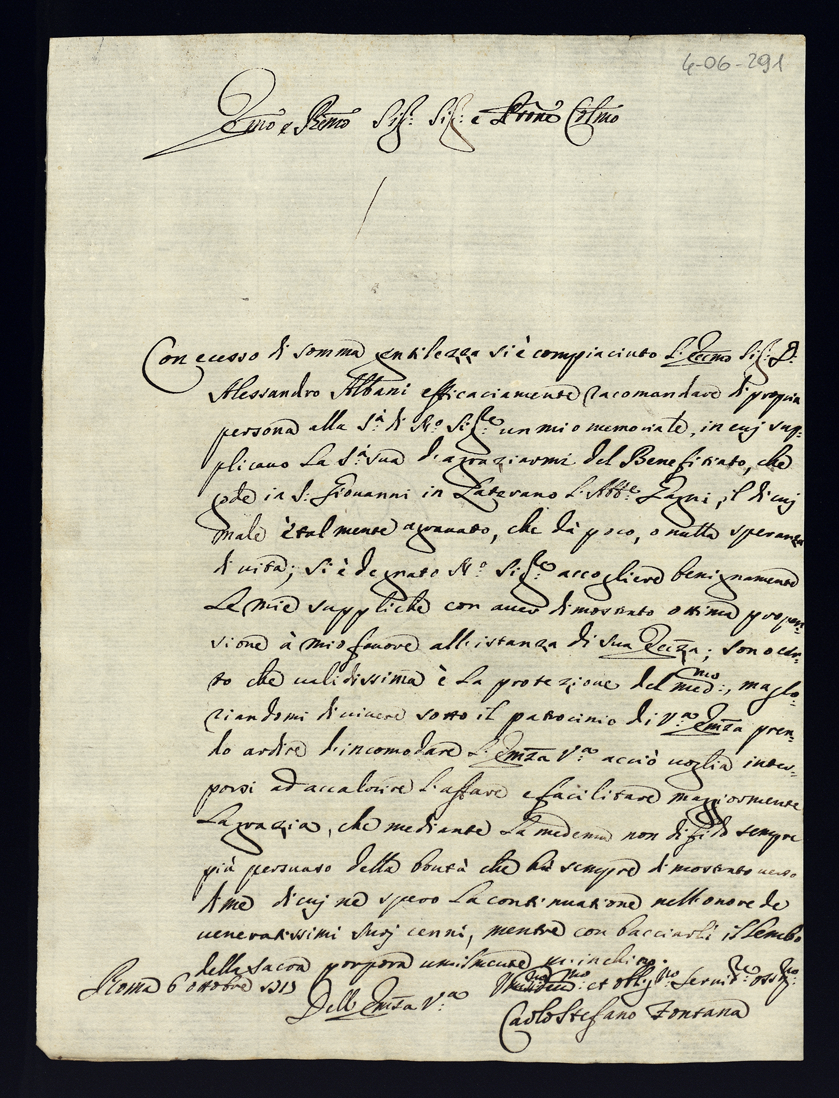 4-06-291
Emo e Rmo Sig: Sig: e Prone Colmo
Con ecesso di somma gentilezza si è compiaciuto L: Eccmo Sig: D:
Alessandro Albani efficaciamente racomandare di propria
persona alla S.tà di N.o Sig.re un mio memoriale, in cuj sup-
plicavo La S.tà sua d'agraziarmi del Benefitiato, che
gode in S: Giovanni in Laterano L'Abb.e Zagni, il di cuj
male è tal mente agravato, che dà poco, o nulla speranza
di vita; si è degnato N.o Sig.re accogliere benignamente
Le mie suppliche con aver dimostrato ottima propen-
sione à mio favore all'istanza di sua Eccza; sono cer-
to che validissima è La protezione del med:mo, ma glo-
riandomi di vivere sotto il patrocinio di V.ra Emza pren-
do ardire d'incomodare L'Emza V.ra acciò voglia inter-
porsi ad accalorire L'affare e facilitare maggiormente
La grazia, che mediante La medema non difido sempre
più persuaso della bontà che hà sempre dimostrato verso
di me di cuj ne spero La continuatione nell'onore de
veneratissimi suoj cenni, mentre con bacciarli il Lembo
della sacra porpora umilmente m'inchino.
Roma 6 ottobre 1713
Dell'Emza V.ra
et oblig.mo Servit.re oss.mo
Carlo Stefano Fontana